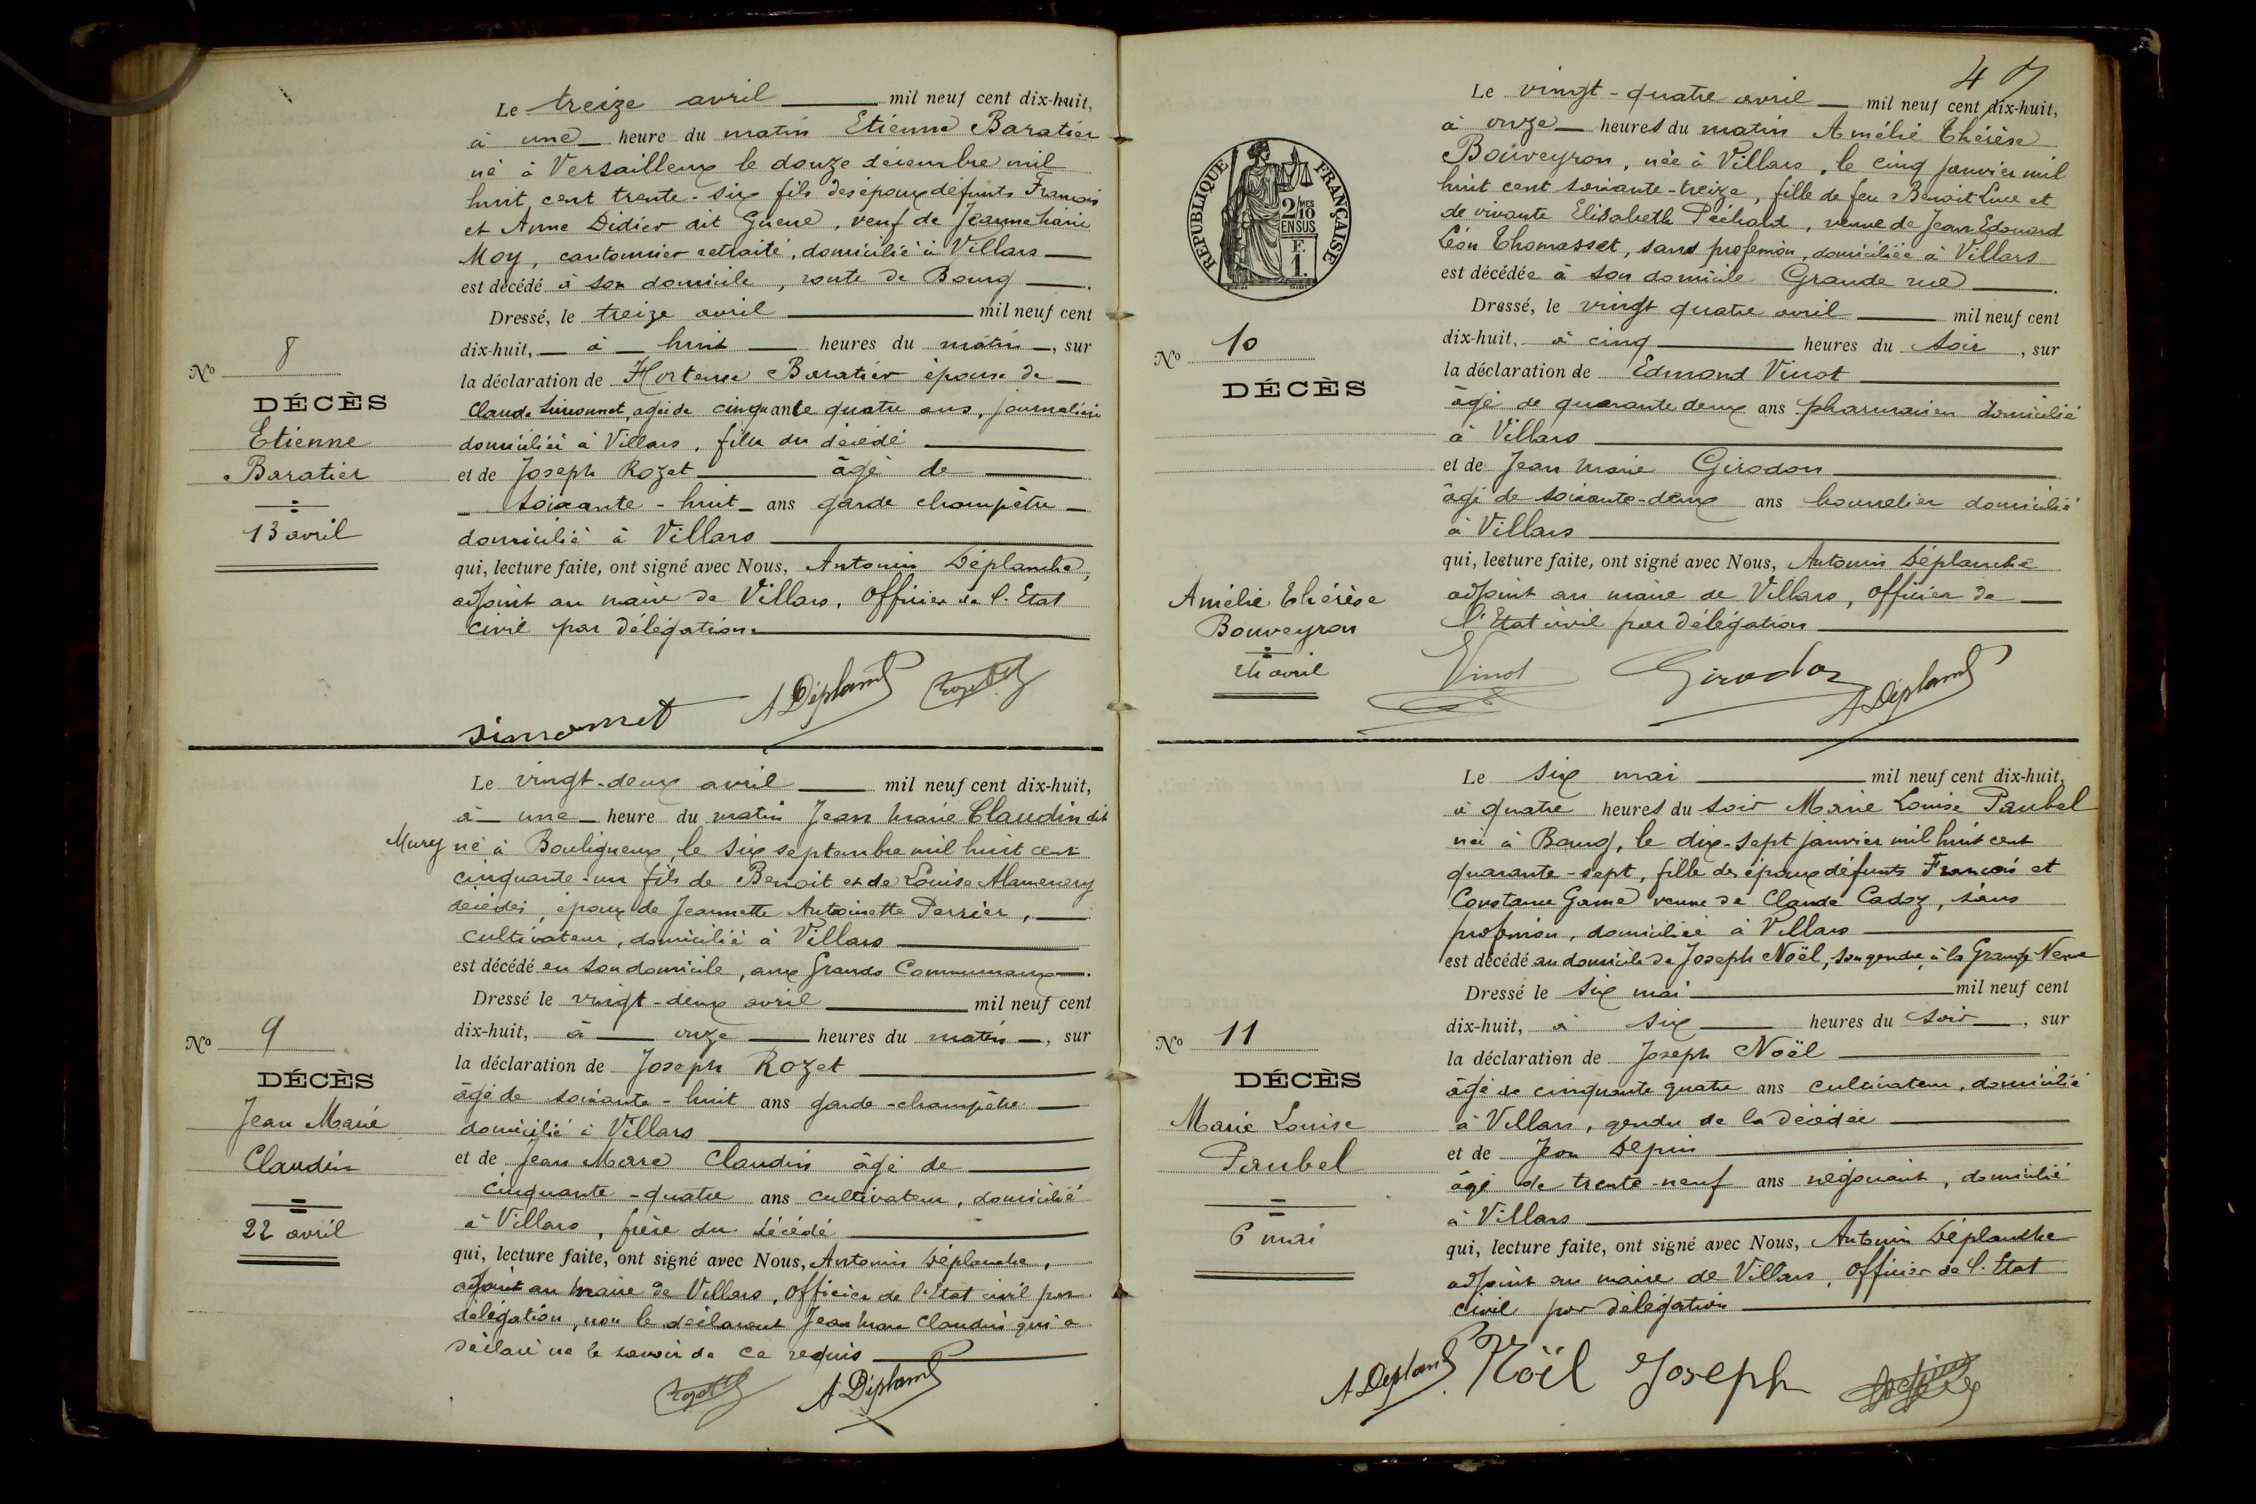 Le treize avril mil neuf cent dix-huit,
à une heure du matin Etienne Baratier
né à Versailleux le douze décembre mil
huit cent trente-six fils des époux défunts François
et Anne Didier dit Guene, veuf de Jeanne Marie
Moy, cantonnier retraité, domicilié à Villars
est décédé à son domicile, route de Bourg
Dressé, le treize avril mil neuf cent
dix-huit, à huit heures du matin, sur
la déclaration de Hortense Baratier épouse de
Claude Simonnet, agée de cinquante quatre ans, journalière
domiciliée à Villars, fille du décédé
et de Joseph Rozet âgé de
soixante-huit ans garde champêtre
domicilié à Villars
qui, lecture faite, ont signé avec Nous, Antonin Déplanche,
adjoint au maire de Villars, Officier de l'Etat
civil par délégation.
Simonnet A Déplanche Rozet
No 8
DÉCÈS
Etienne
Baratier
13 avril
Le vingt-deux avril mil neuf cent dix-huit,
à une heure du matin Jean Marie Claudin dit
Mury né à Bouligneux, le six septembre mil huit cent
cinquante-un fils de Benoit et de Louise
décédés, époux de Jeannette Antoinette Perrier,
cultivateur, domicilié à Villars
est décédé en son domicile, aux Grands Communaux.
Dressé le vingt-deux avril mil neuf cent
dix-huit, à onze heures du matin, sur
la déclaration de Joseph Rozet
âgé de soixante-huit ans garde-champêtre
domicilié à Villars
et de Jean Marc Claudin âgé de
cinquante-quatre ans cultivateur, domicilié
à Villars, frère du décédé
qui, lecture faite, ont signé avec Nous, Antonin Déplanche,
adjoint au maire de Villars, Officier de l'Etat civil par
délégation, non le déclarant Jean Marc Claudin qui a
déclaré ne le savoir de ce requis
Rozet A Déplanche
No 9
DÉCÈS
Jean Marie
Claudin
22 avril
47
RÉPUBLIQUE FRANÇAISE
2/10 MES
EN SUS
F.
1.
Le vingt-quatre avril mil neuf cent dix-huit,
à onze heures du matin Amélie Thérèse
Bouveyron, née à Villars, le cinq janvier mil
huit cent soixante-treize, fille de feu Benoit Luc et
de vivante Elisabeth Péchard, veuve de Jean Edouard
Léon Thomasset, sans profession, domiciliée à Villars
est décédée à son domicile Grande rue
Dressé, le vingt quatre avril mil neuf cent
dix-huit, à cinq heures du soir, sur
la déclaration de Edmond Vinot
âgé de quarante deux ans pharmacien domicilié
à Villars
et de Jean Marie Girodon
âgé de soixante-deux ans bourrelier domicilié
à Villars
qui, lecture faite, ont signé avec Nous, Antonin Déplanche
adjoint au maire de Villars, Officier de
l'Etat civil par délégation
Vinot Girodon A Déplanche
No 10
DÉCÈS
Amélie Thérèse
Bouveyron
24 avril
Le six mai mil neuf cent dix-huit,
à quatre heures du soir Marie Louise Paubel
née à Bourg, le dix-sept janvier mil huit cent
quarante-sept, fille des époux défunts François et
Constance Game veuve de Claude Cadoz, sans
profession, domiciliée à Villars
est décédé au domicile de Joseph Noël, son gendre, à la Grange Neuve
Dressé le six mai mil neuf cent
dix-huit, à six heures du soir, sur
la déclaration de Joseph Noël
âgé de cinquante quatre ans cultivateur, domicilié
à Villars, gendre de la décédée
et de Jean Depin
âgé de trente-neuf ans négociant, domicilié
à Villars
qui, lecture faite, ont signé avec Nous, Antonin Déplanche
adjoint au maire de Villars, Officier de l'Etat
civil par délégation
A Déplanche Noël Joseph
No 11
DÉCÈS
Marie Louise
Paubel
6 mai